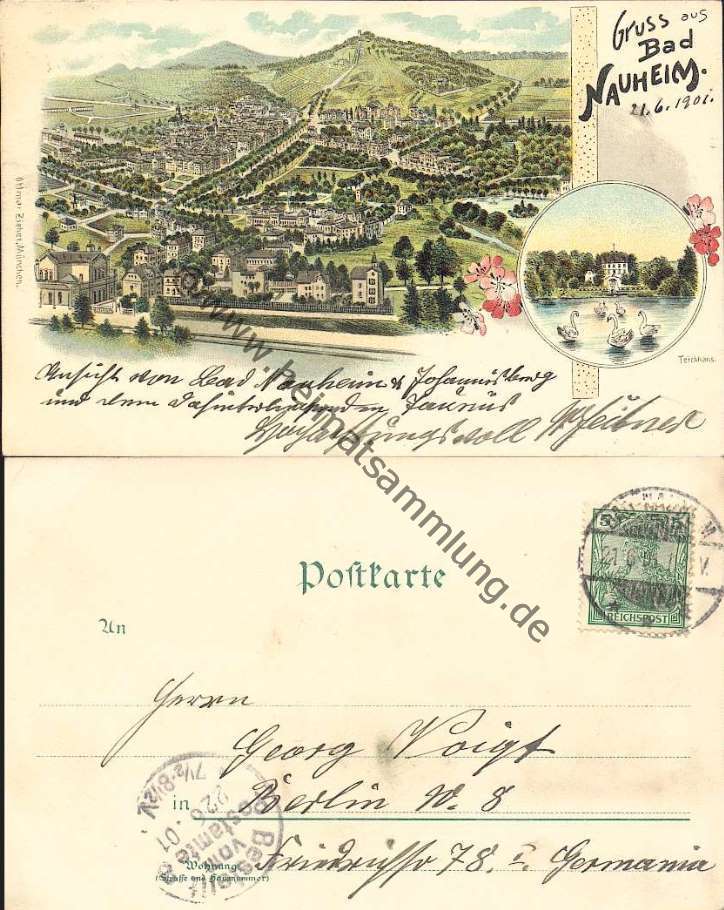 Gruss aus
Bad
NAUHEIM.
21.6.1901.
Ottmar Zieher, München.
Teichhaus.
Ansicht von Bad Nauheim & Johannisberg
und dem dahinterliegenden Taunus
Hochachtungsvoll
www.heimatsammlung.de
Postkarte
5
REICHSPOST
An
Herrn
Georg Voigt
in Berlin W. 8
Wohnung Friedrichstr 78. I. Germania
(Strasse und Hausnummer)
Bestellt
vom
Postamte 8
22.6.01
7½-8½V